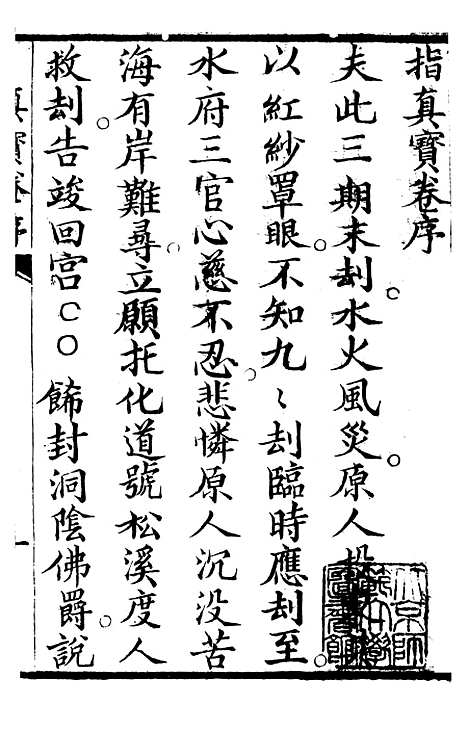 指真寶卷序
夫此三期末刦。水火風災。原人投
以紅紗罩眼。不知九〻刦臨時應刦至。
水府三官心慈不忍。悲憐原人沉没苦
海有岸難尋。立願托化道號松溪度人。
救刦。告竣回宮○○ 餙封洞陰佛爵說
真寶卷序
一
北京師
範大學
圖書館